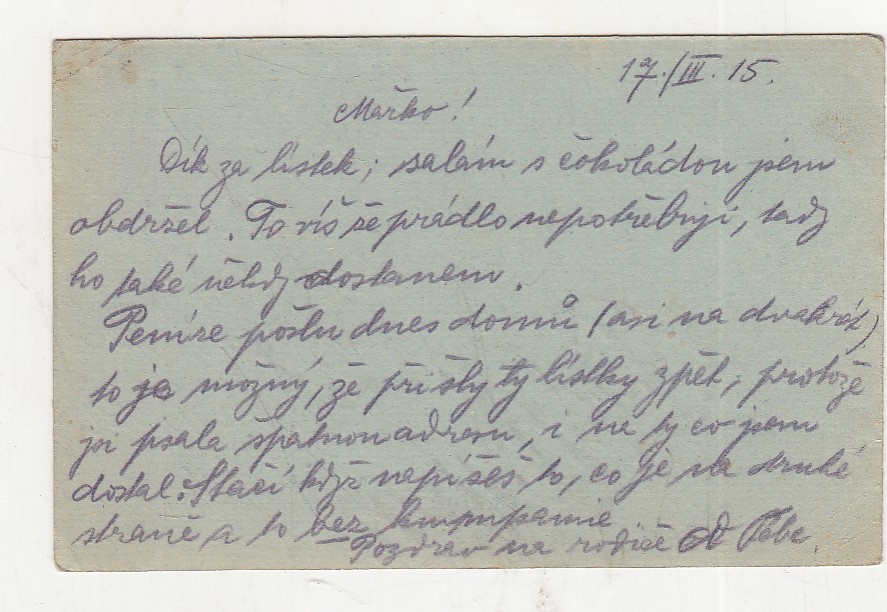 17./III. 15.
Mařko!
Dík za lístek; salám s čokoládou jsem
obdržel. To víš že prádlo nepotřebuji, tady
ho také někdy dostanem.
Peníze pošlu dnes domů (asi na dvakrát)
to je možný, že přišly ty lístky zpět, protože
jsi psala špatnou adresu, i ne ty co jsem
dostal. Stačí když napíšeš to, co je na druhé
straně a to bez
Pozdrav na rodiče od